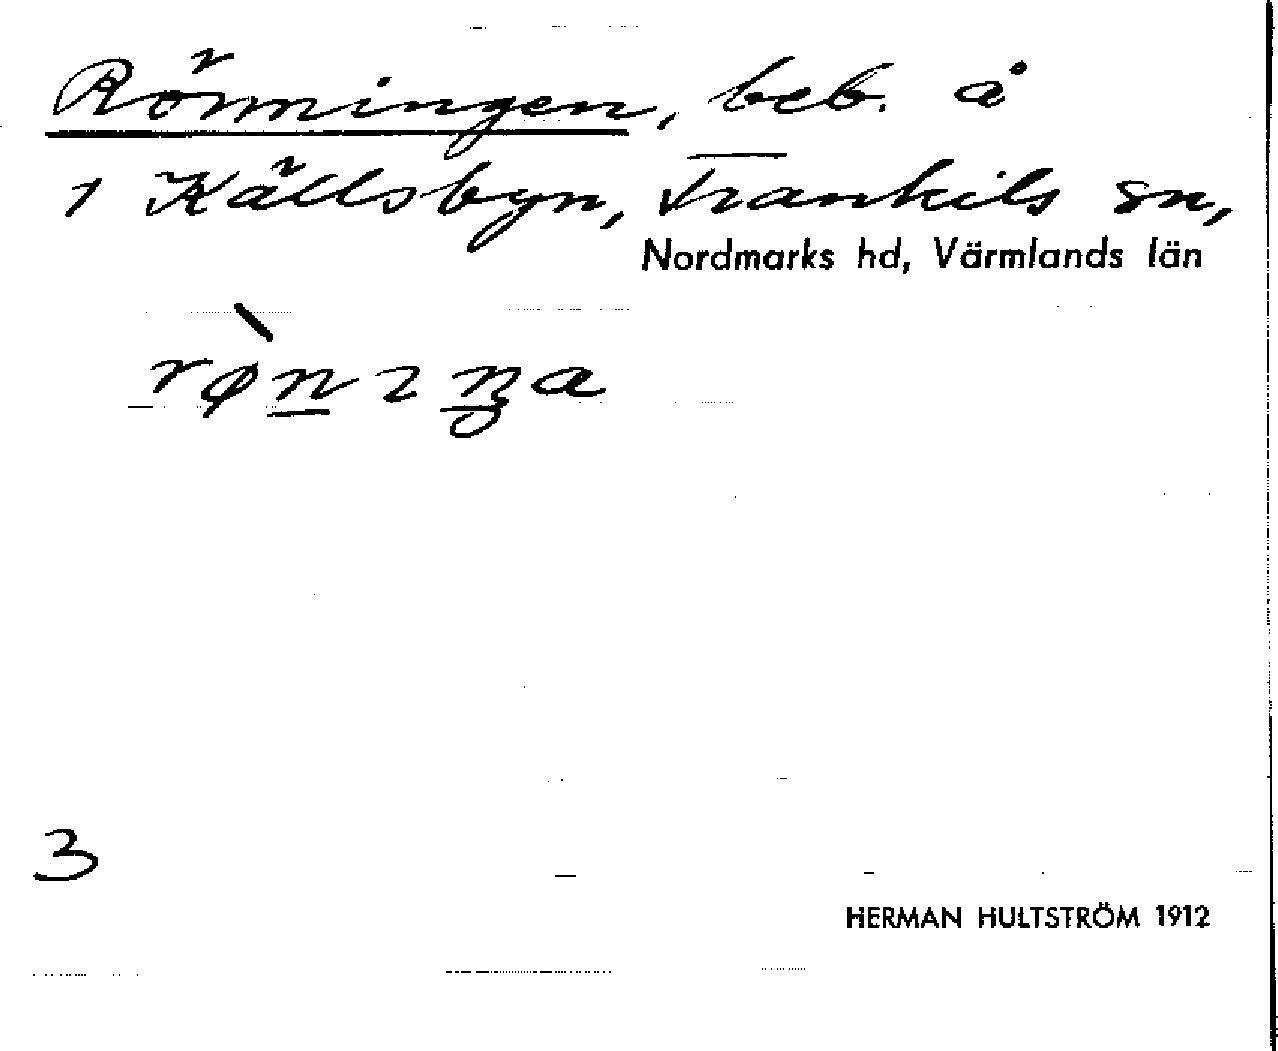 Rönningen, beb. å
1 Källsbyn, Trankils sn,
Nordmarks hd, Värmlands län
3
HERMAN HULTSTRÖM 1912